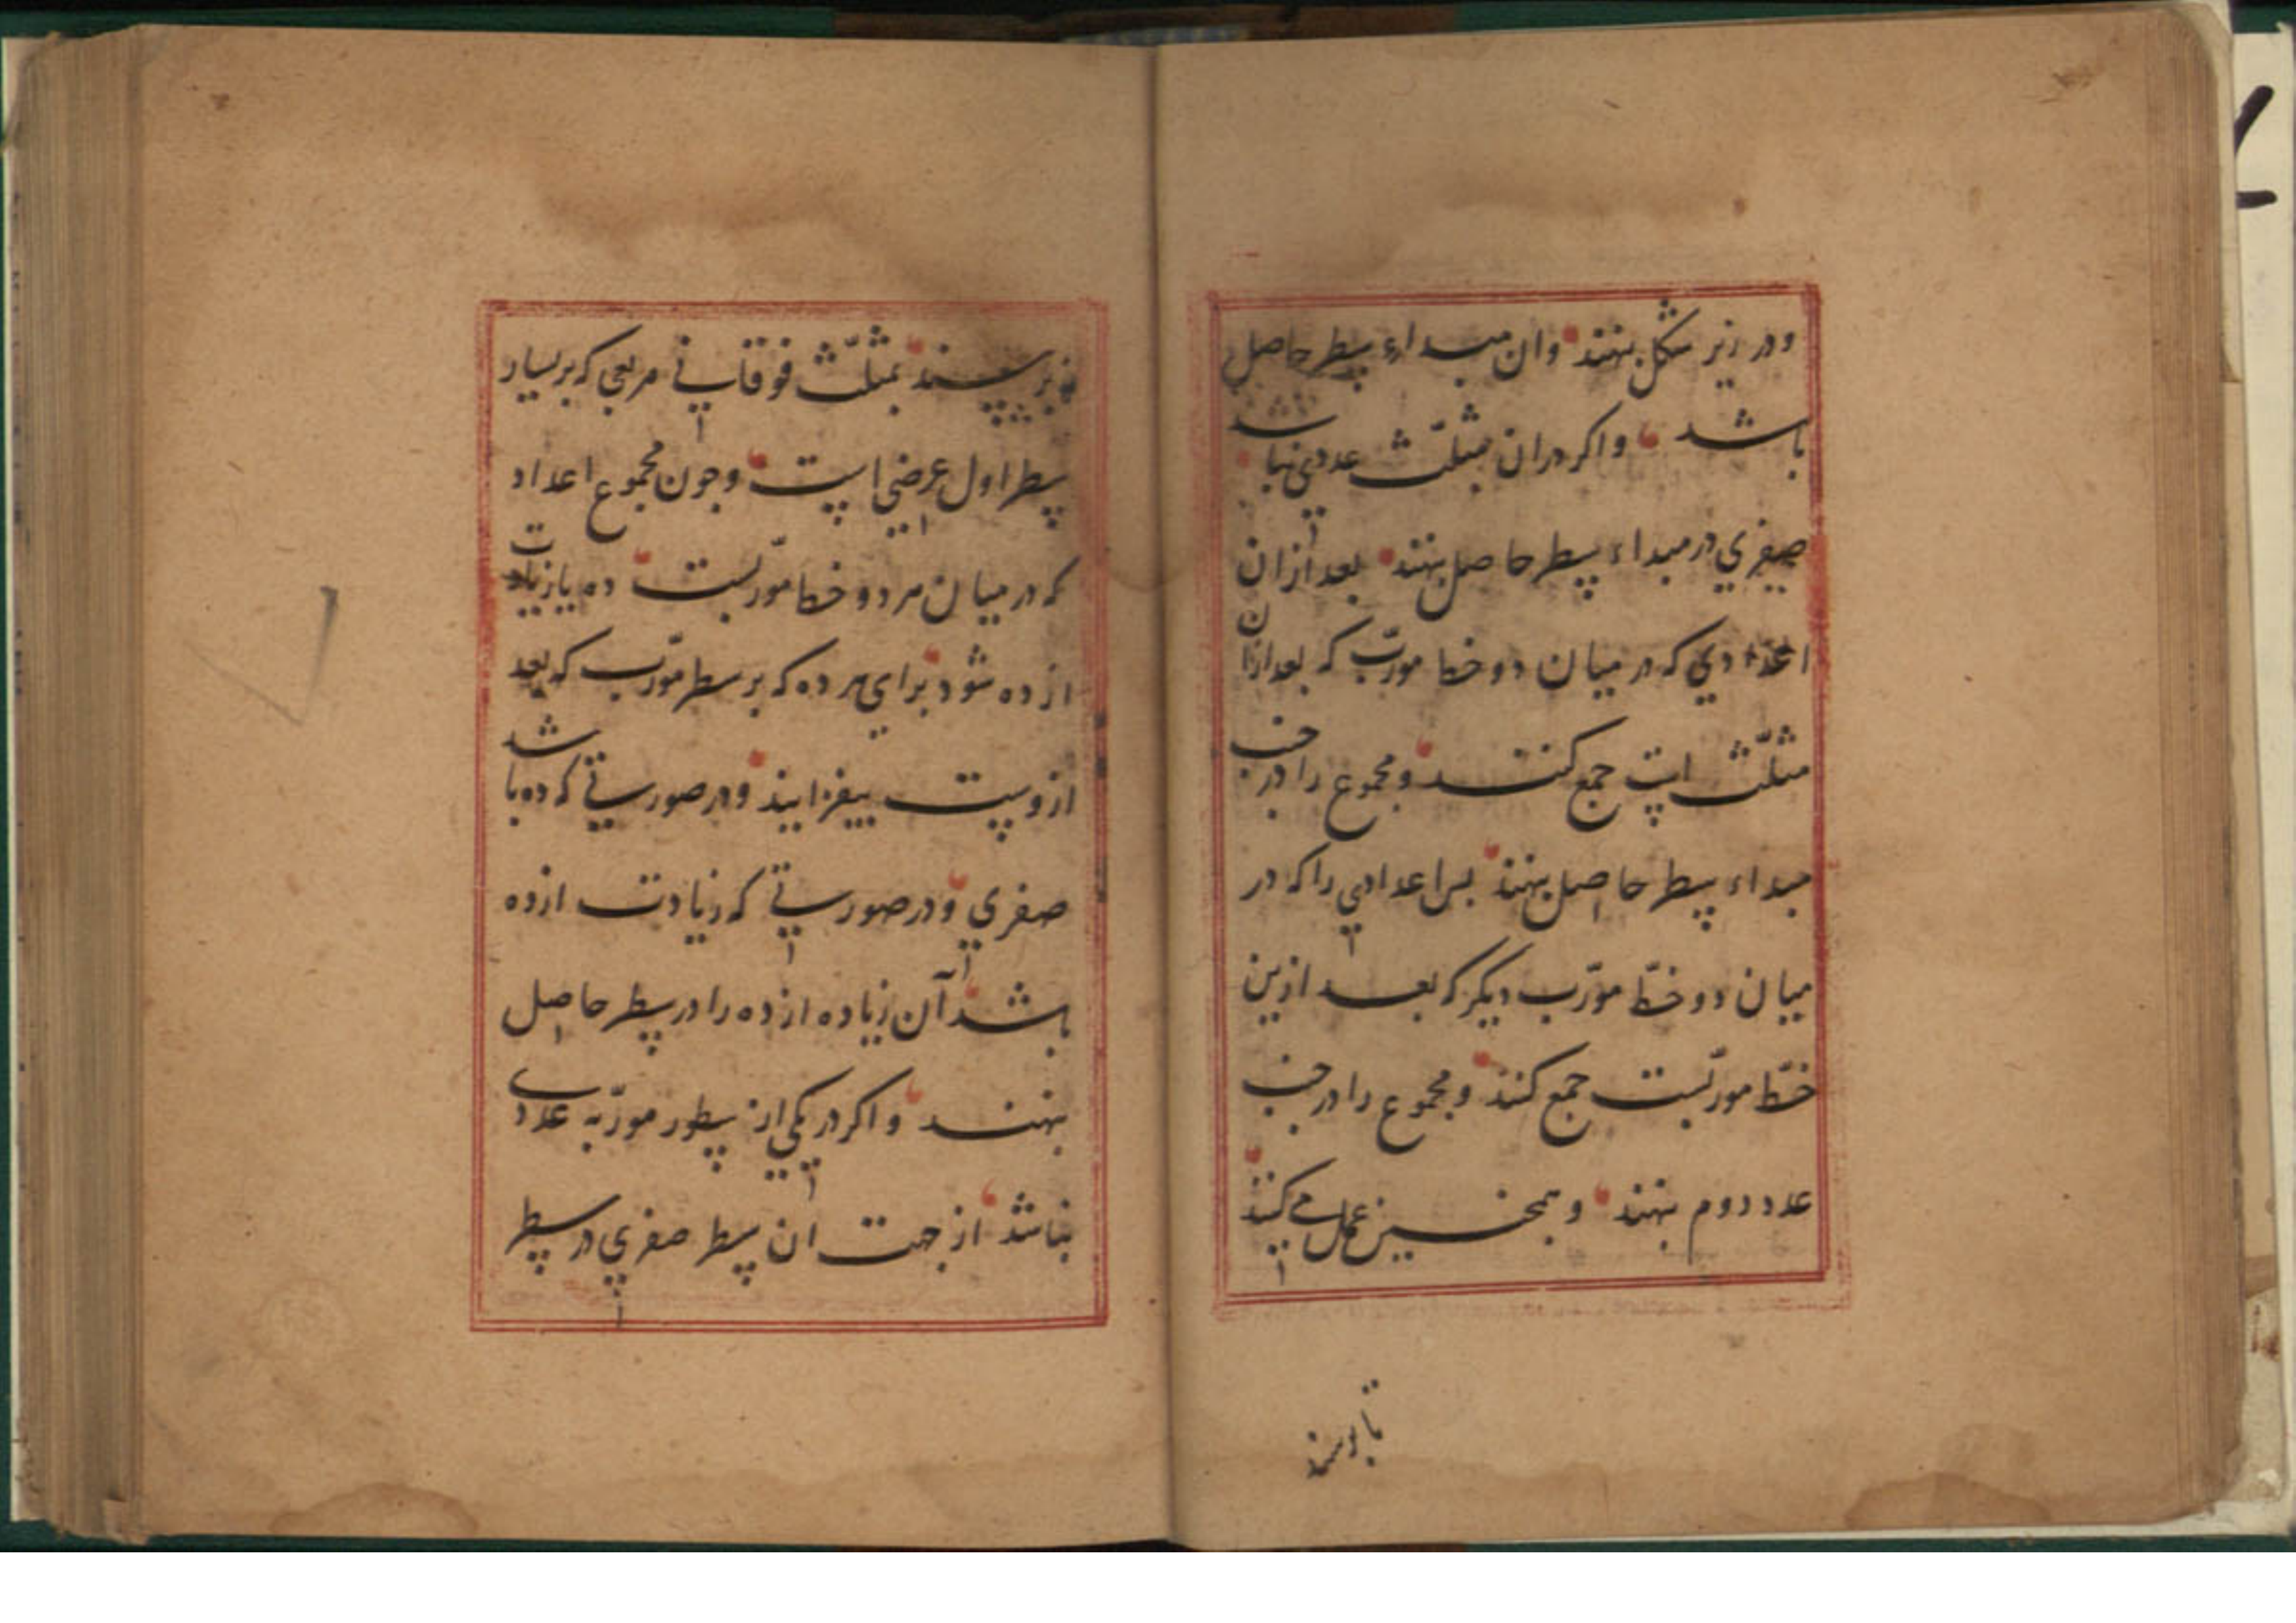 ودر زیر شکل بنهند وان مبداء سطر حاصل
باشد واکر دران مثلث عددی نباشد
صفری در مبداء سطر حاصل بنهند بعد ازان
اعدادی که در میان دو خط مورّب که بعد ازان
مثلّث است جمع کنند و مجموع را در جنب
مبداء سطر حاصل بنهند بس اعدادی را که در
میان دو خطّ مورّب دیکر که بعد ازین
خطّ مورّبست جمع کنند و مجموع را در جنب
عدد دوم بنهند و همجنین عمل می کنند
تا برسند
بمثلّث فوقانی مربعی که بر یسار
سطر اول عرضی است وجون مجموع اعداد
که در میان هر دو خط مورّبست ده یا زیادت
از ده شود برای هر ده که بر سطر مورّب که بعد
ازوست بیفزایند ودر صورتی که ده باشد
صفری ودر صورتی که زیادت از ده
باشد آن زیاده از ده را در سطر حاصل
بنهند واکر در یکی از سطور مورّبه عددی
نباشد از جهت ان سطر صفری در سطر